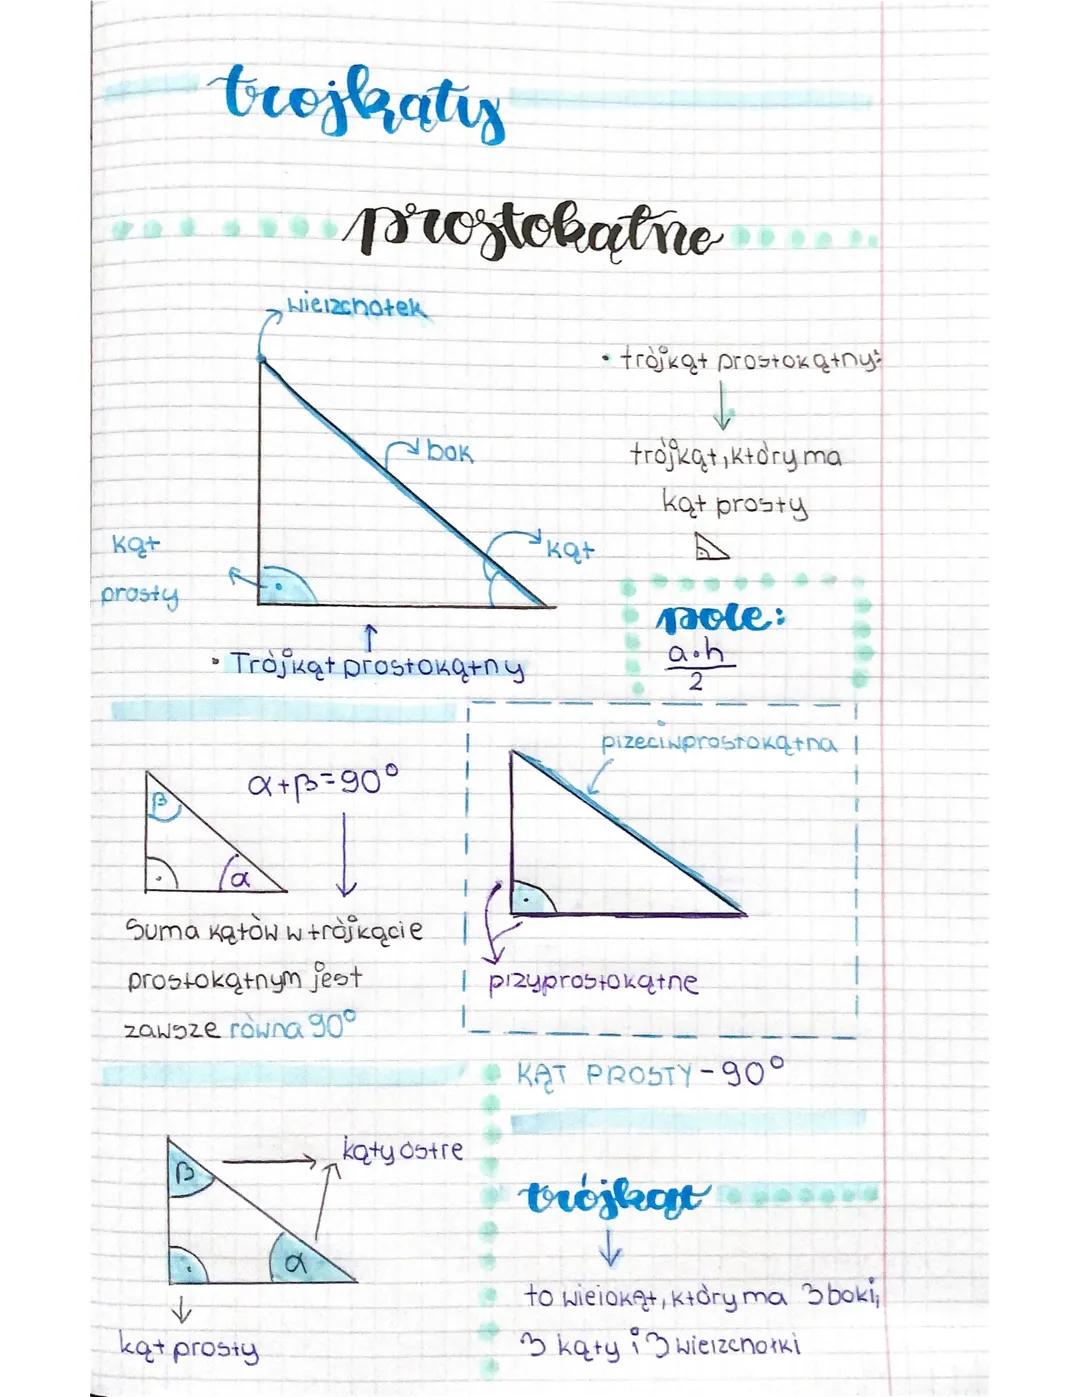 trojkąty
prostokątne
wierzchołek
• trójkąt prostokątny:
bok
trójkąt, który ma
kąt prosty
kąt
prosty
kąt
pole:
a·h
2
• Trójkąt prostokątny
przeciwprostokątna
α+β=90°
β
α
Suma kątów w trójkącie
prostokątnym jest
zawsze równa 90°
przyprostokątne
KĄT PROSTY - 90°
kąty ostre
β
α
trójkąt
to wielokąt, który ma 3 boki,
3 kąty i 3 wierzchołki
kąt prosty